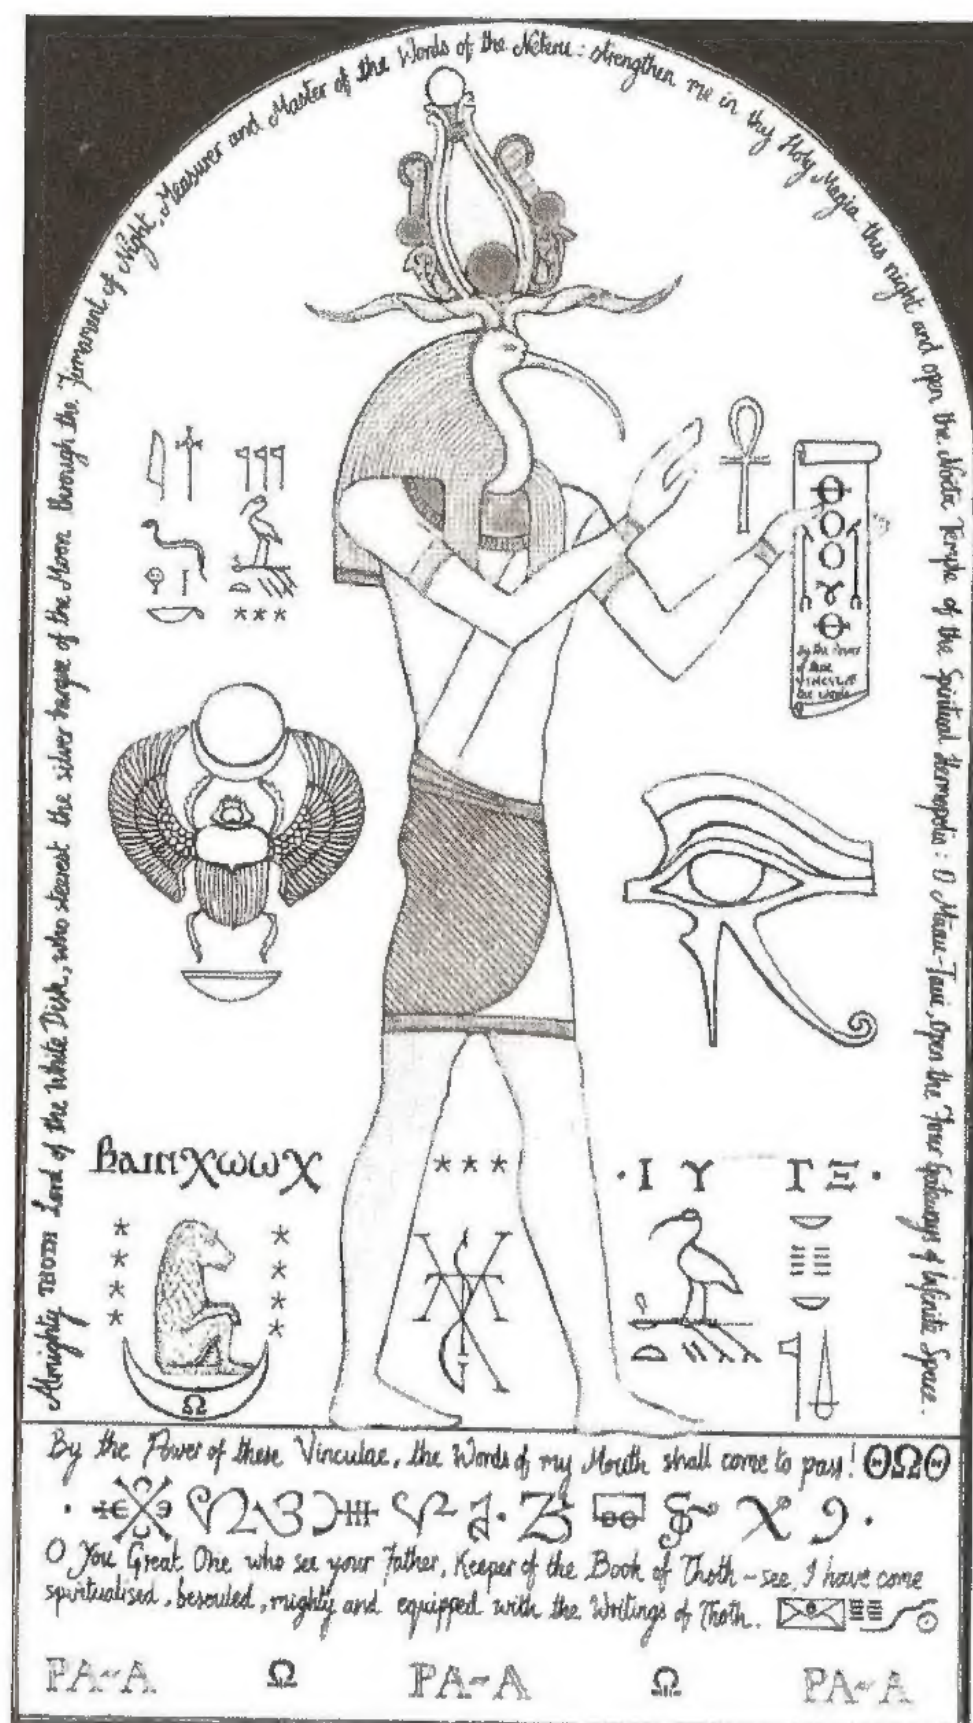 Almighty THOTH Lord of the White Disk, who steerest the silver barque of the Moon through the Firmament of Night, Measurer and Master of the Words of the Neteru: strengthen me in thy Holy Magia this night and open the Temple of the Spiritual Hermopolis: O open the Four Gateways of Infinite Space.
By the Power
of these
VINCULAE
the Words
ΒαιnχωωχΧ
· Ι Υ Γ Ξ ·
Ω
By the Power of these Vinculae, the Words of my Mouth shall come to pass! ΘΩΘ
O You Great One who see your Father, Keeper of the Book of Thoth - see, I have come
spiritualised, besouled, mighty and equipped with the Writings of Thoth.
PA-A Ω PA-A Ω PA-A